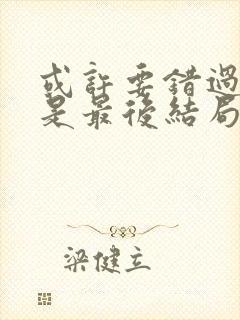 或許要錯過
是最後結局
梁健立